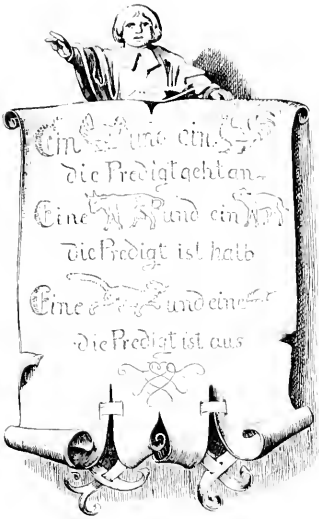 Ein und ein
die Predigt geht an
Eine und ein
die Predigt ist halb
Eine und eine
die Predigt ist aus